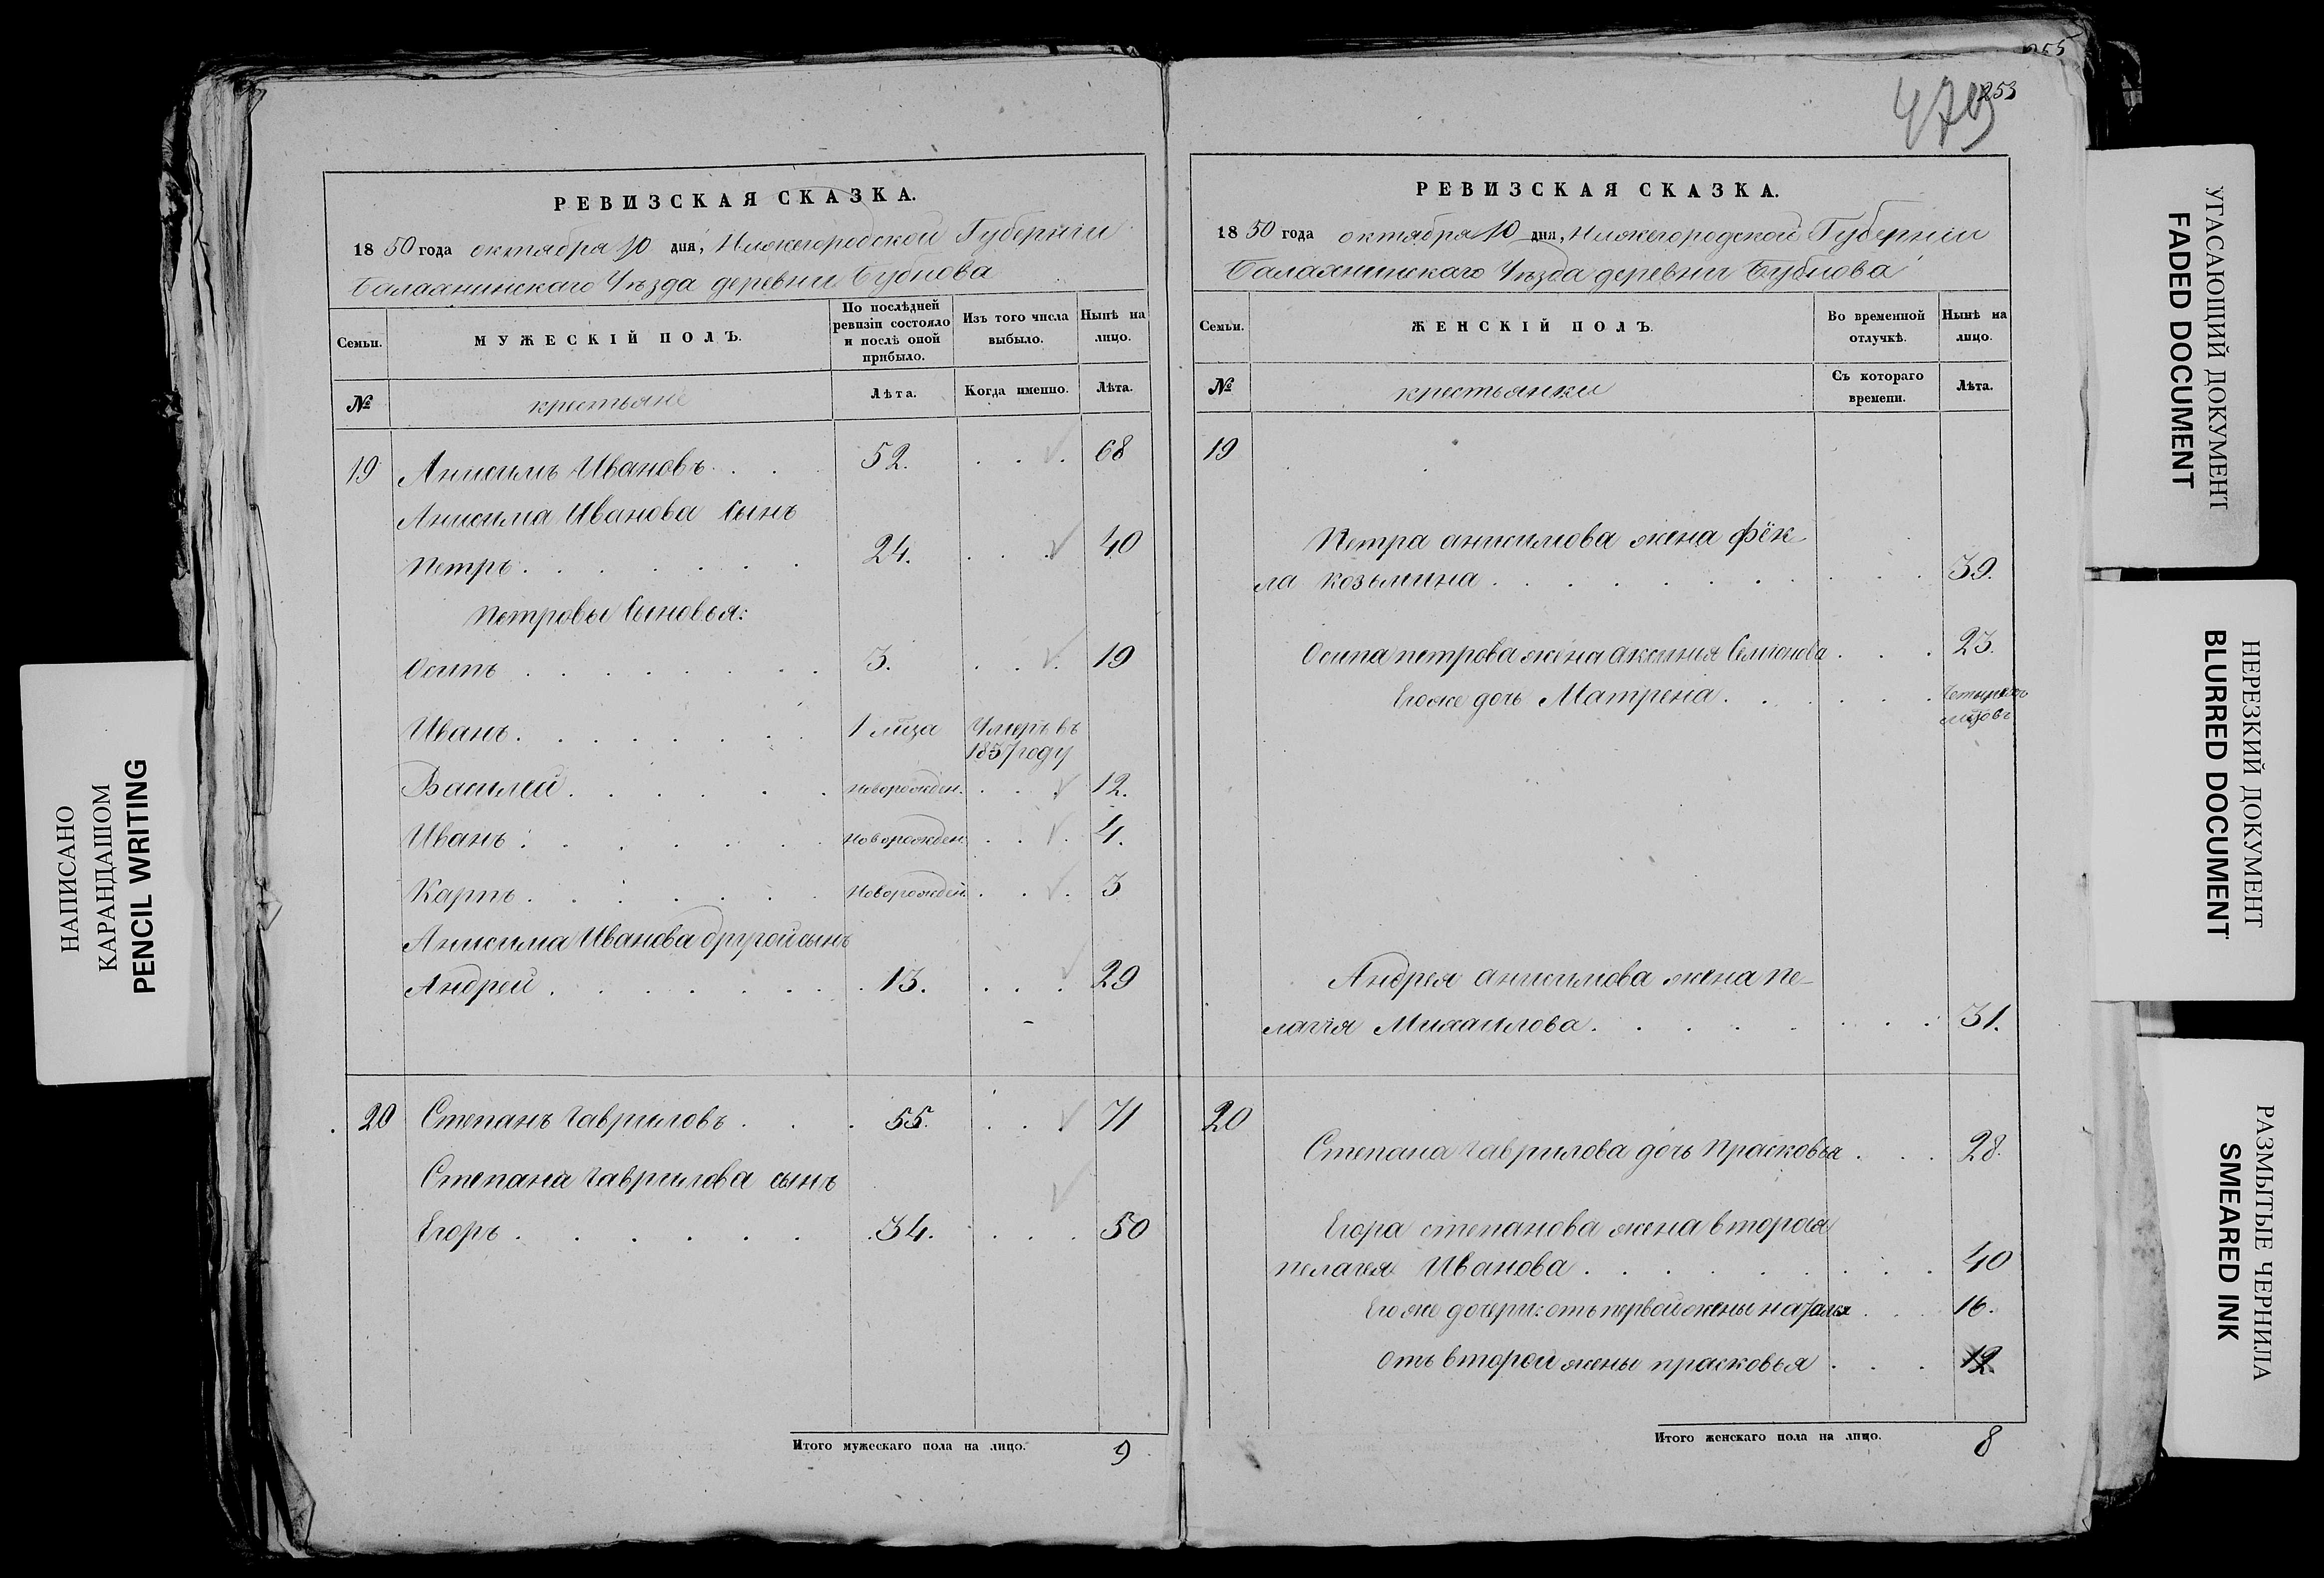 255
253
473
РЕВИЗСКАЯ СКАЗКА.
1850 года октября 10 дня, Нижегородской Губернiи
Балахнинскаго Уѣзда деревни Бубнова
Семьи.
МУЖЕСКІЙ ПОЛЪ.
По послѣдней ревизіи состояло и послѣ оной прибыло.
Изъ того числа выбыло.
Нынѣ на лицо.
№
крестьяне
Лѣта.
Когда именно.
Лѣта.
19 Анисимъ Ивановъ . . . 52. . . . 68
Анисима Иванова Сынъ
Петръ . . . . . . 24. . . . 40
Петровы Сыновья:
Осипъ . . . . . . 3. . . . 19
Иванъ . . . . . . 1 мца Умеръ въ
1837 году
Василей . . . . . новорожден. . . . 12.
Иванъ . . . . . . новорожден . . . 4.
Карпъ . . . . . . новорожден . . . 3
Анисима Иванова другой сынъ
Андрей . . . . . . 13. . . . 29
20 Степанъ Гавриловъ . . . 55. . . . 71
Степана Гаврилова сынъ
Егоръ . . . . . . 34. . . . 50
Итого мужескаго пола на лицо. 9
РЕВИЗСКАЯ СКАЗКА.
1850 года октября 10 дня, Нижегородской Губернiи
Балахнинскаго Уѣзда деревни Бубнова
Семьи.
ЖЕНСКІЙ ПОЛЪ.
Во временной отлучкѣ.
Нынѣ на лицо.
№
крестьянки
Съ котораго времени.
Лѣта.
19
Петра анисимова жена фёк-
ла козьмина . . . . . . . . 39.
Осипа петрова жена аксинья Семионова . . . 23.
Егоже дочь Матрена . . . . . .
мцовъ
Андрея анисимова жена пе-
лагія Михаилова . . . . . . . 31.
20
Степана Гаврилова дочь Прасковья . . . 28.
Егора степанова жена вторая
пелагея Иванова . . . . . . . 40
Егоже дочери: отъ первой жены наталья . . 16.
отъ второй жены прасковья . . . 12.
Итого женскаго пола на лицо. 8
НАПИСАНО
КАРАНДАШОМ
PENCIL WRITING
УГАСАЮЩИЙ ДОКУМЕНТ
FADED DOCUMENT
НЕРЕЗКИЙ ДОКУМЕНТ
BLURRED DOCUMENT
РАЗМЫТЫЕ ЧЕРНИЛА
SMEARED INK